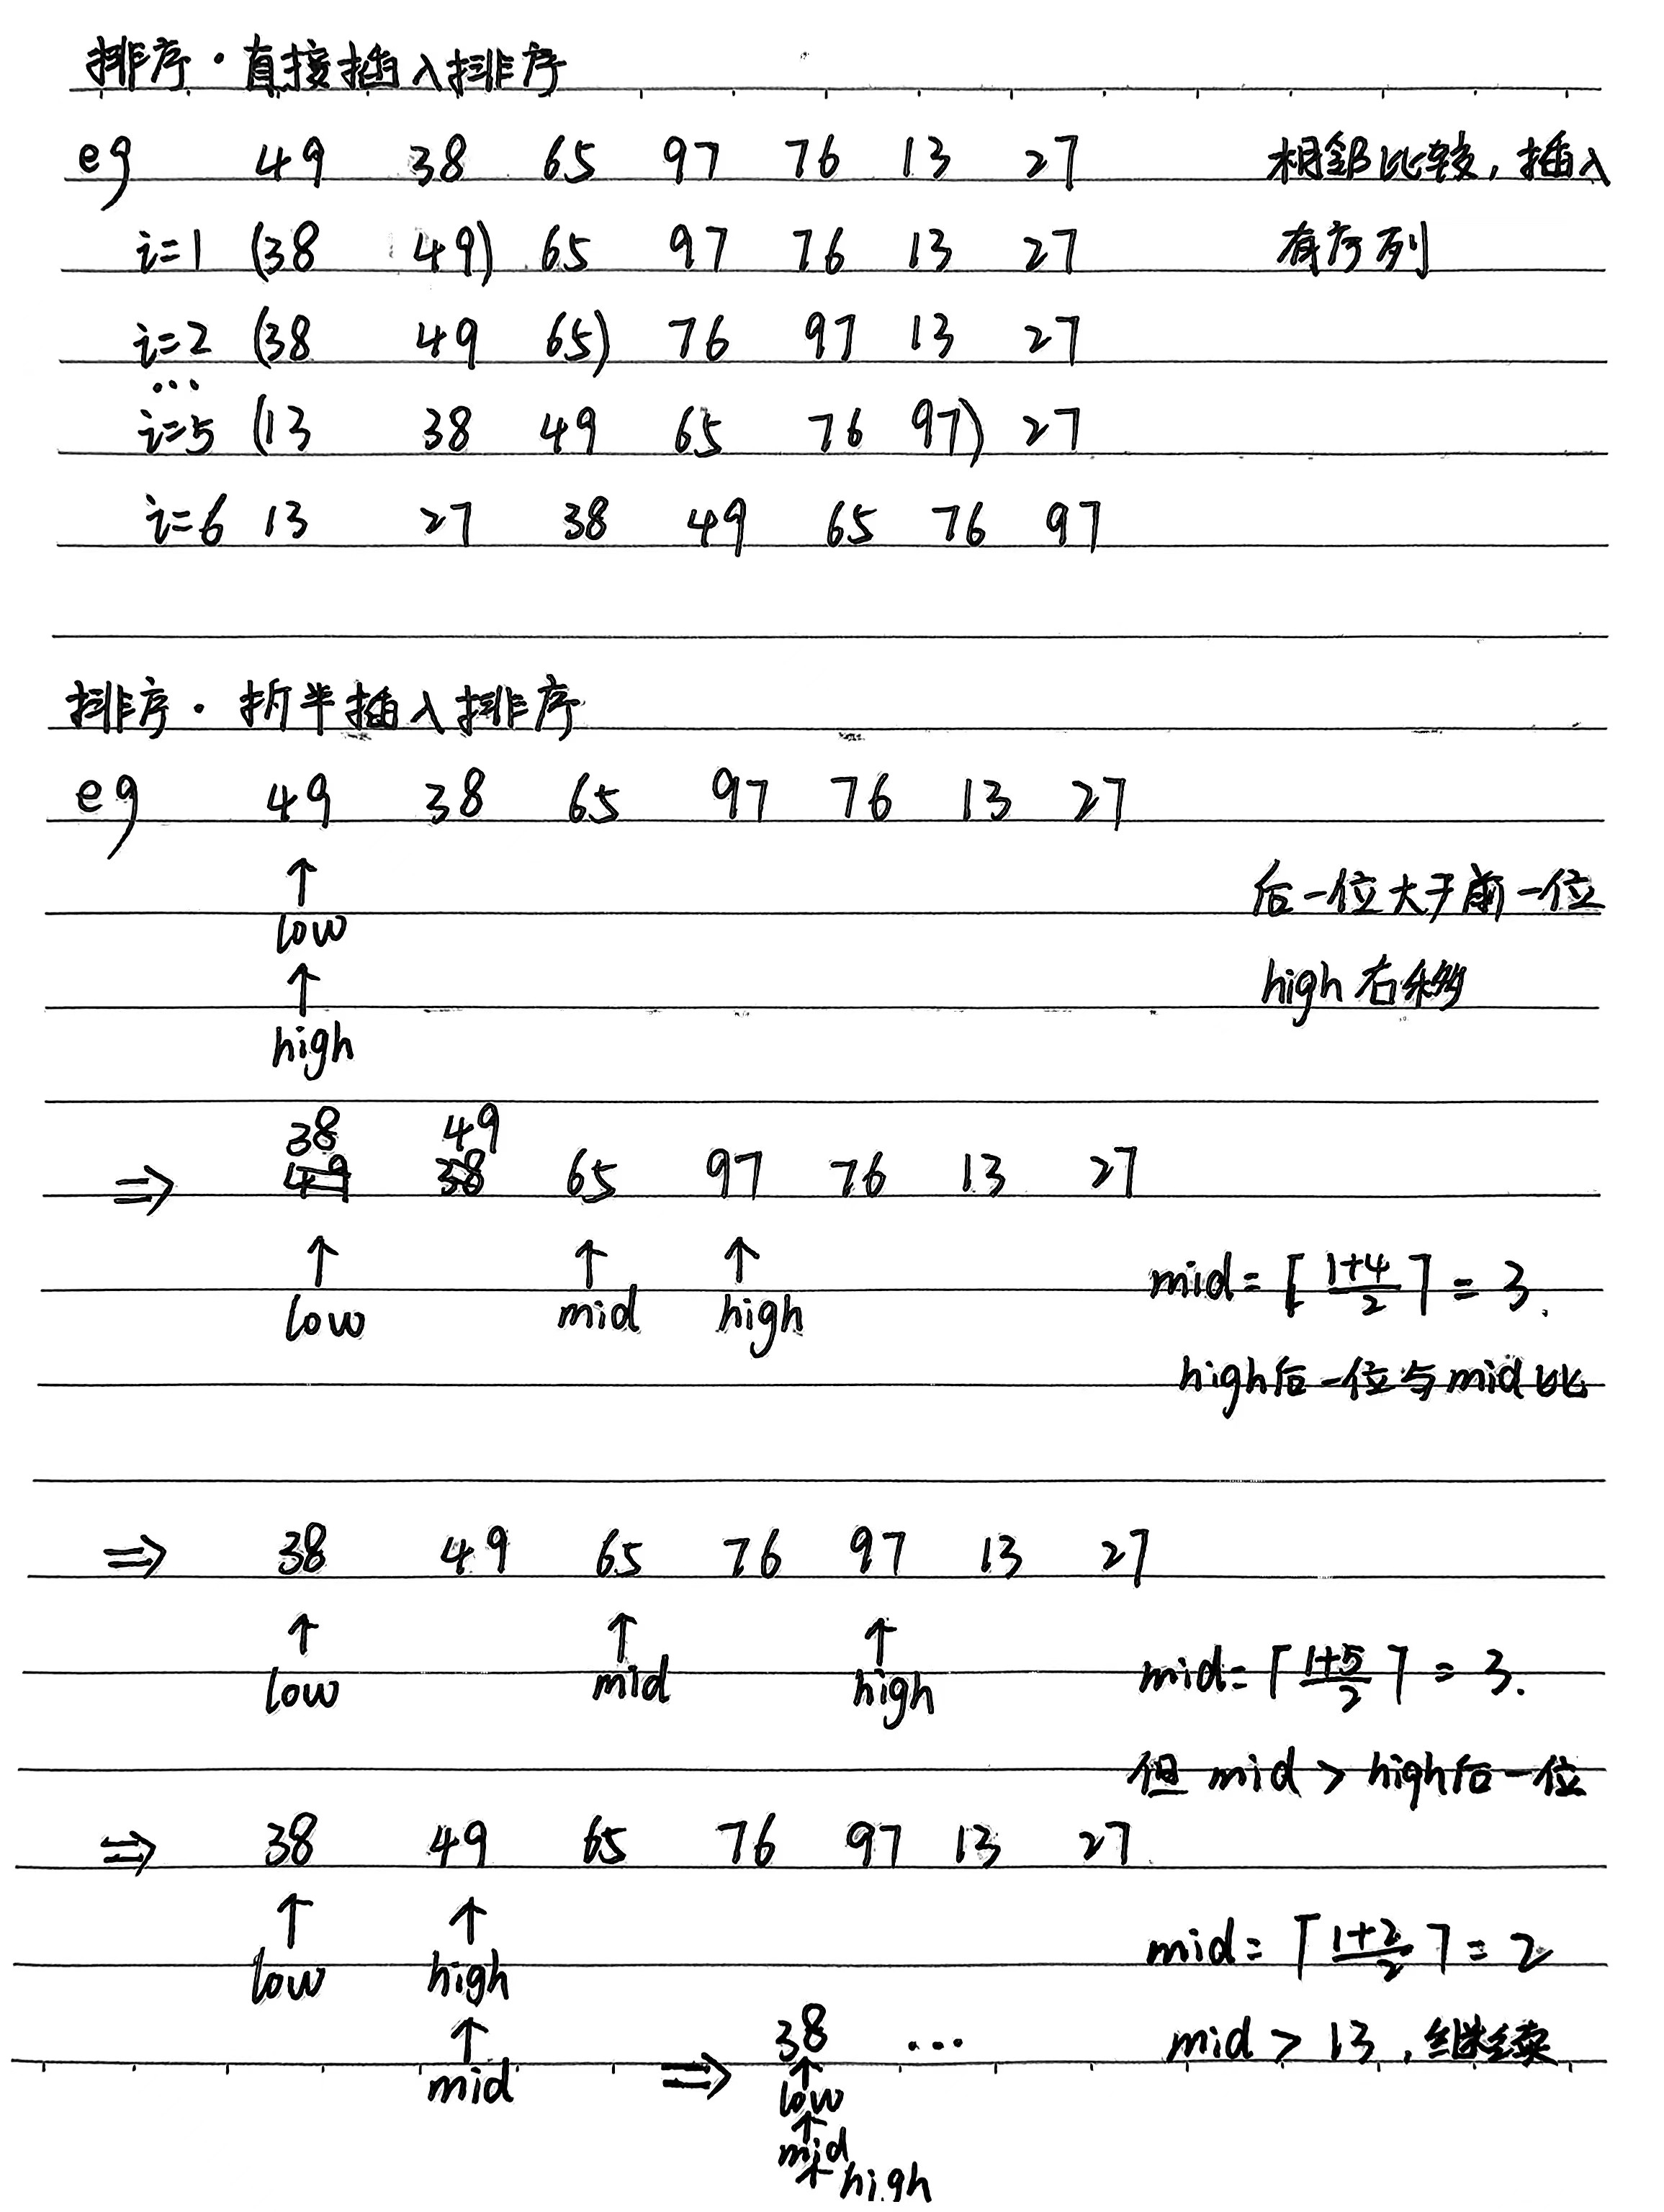 排序·直接插入排序
eg 49 38 65 97 76 13 27 相邻比较,插入
i=1 (38 49) 65 97 76 13 27 有序列
i=2 (38 49 65) 76 97 13 27
...
i=5 (13 38 49 65 76 97) 27
i=6 13 27 38 49 65 76 97
排序·折半插入排序
eg 49 38 65 97 76 13 27
↑ 后一位大于前一位
low
↑ high右移
high
38 49
⇒ 49 38 65 97 76 13 27
↑ ↑ ↑ mid=⌈(1+4)/2⌉=3.
low mid high
high后一位与mid比
⇒ 38 49 65 76 97 13 27
↑ ↑ ↑
low mid high mid=⌈(1+5)/2⌉=3.
但 mid > high后一位
⇒ 38 49 65 76 97 13 27
↑ ↑ mid=⌈(1+2)/2⌉=2
low high
↑ ⇒ 38 ... mid > 13,继续
mid ↑
low
↑
mid
↑ high